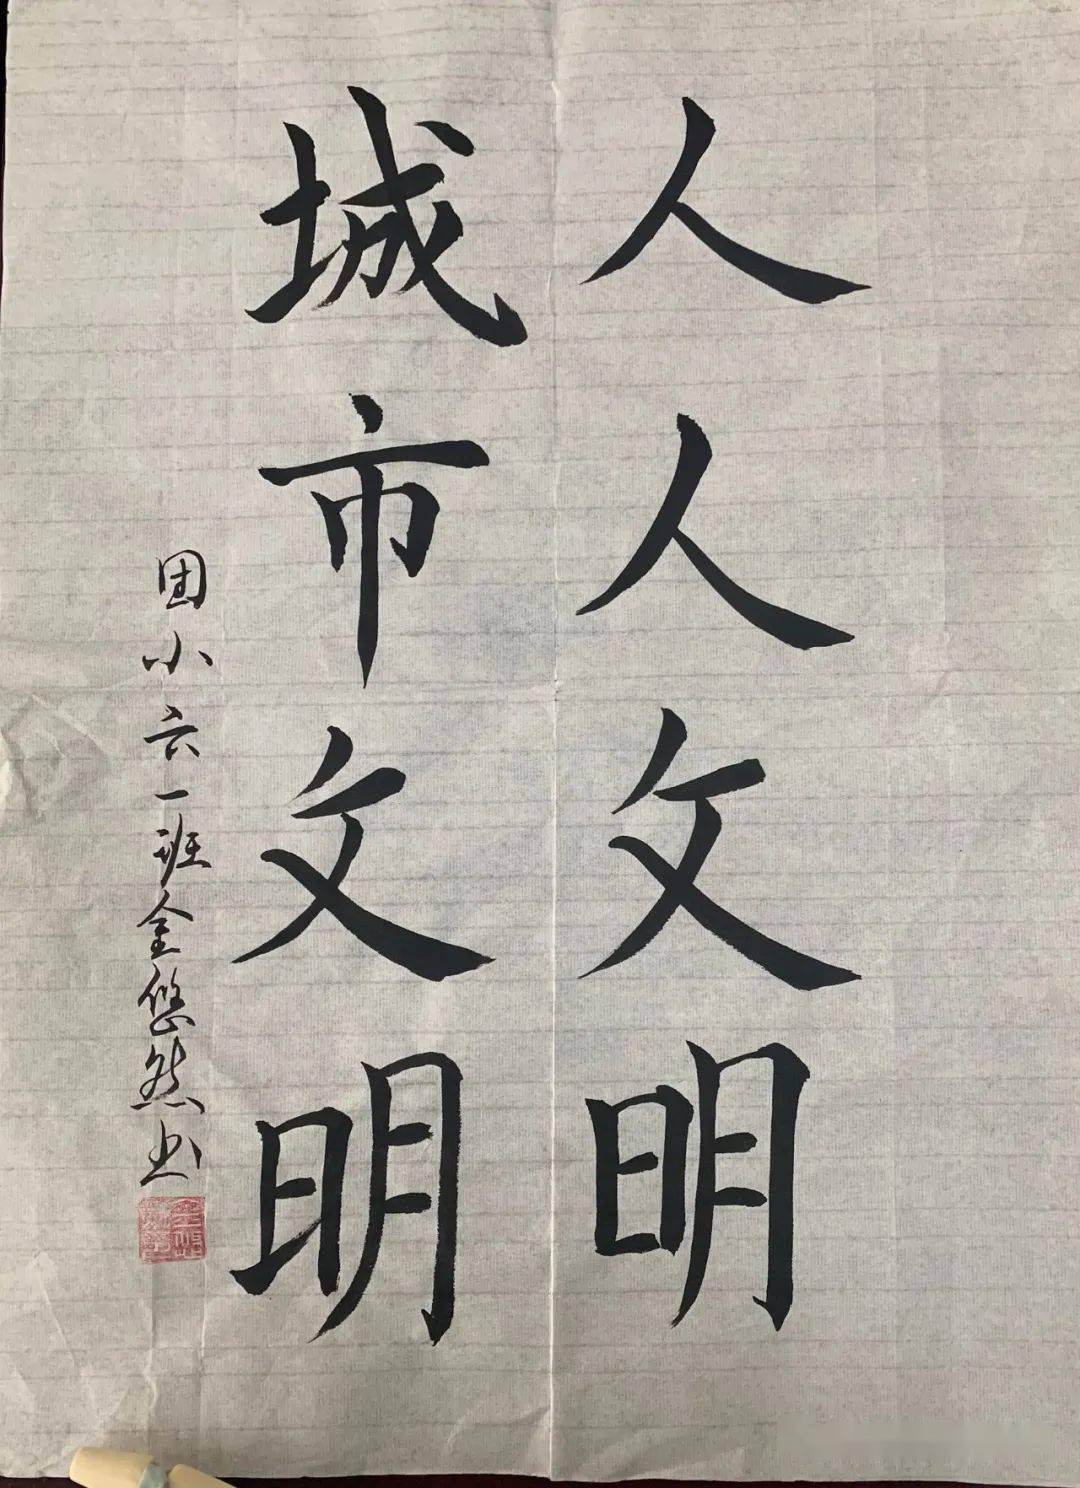 人人文明
城市文明
团小六一班金悠然书